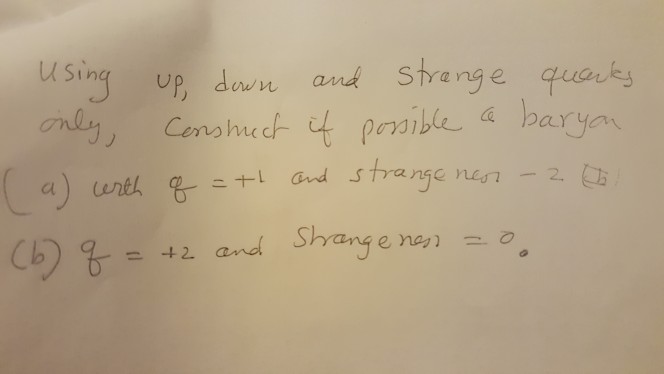 Using up, down and strange quarks
only, Construct if possible a baryon
(a) with q = +1 and strangeness - 2
(b) q = +2 and Strangeness = 0.